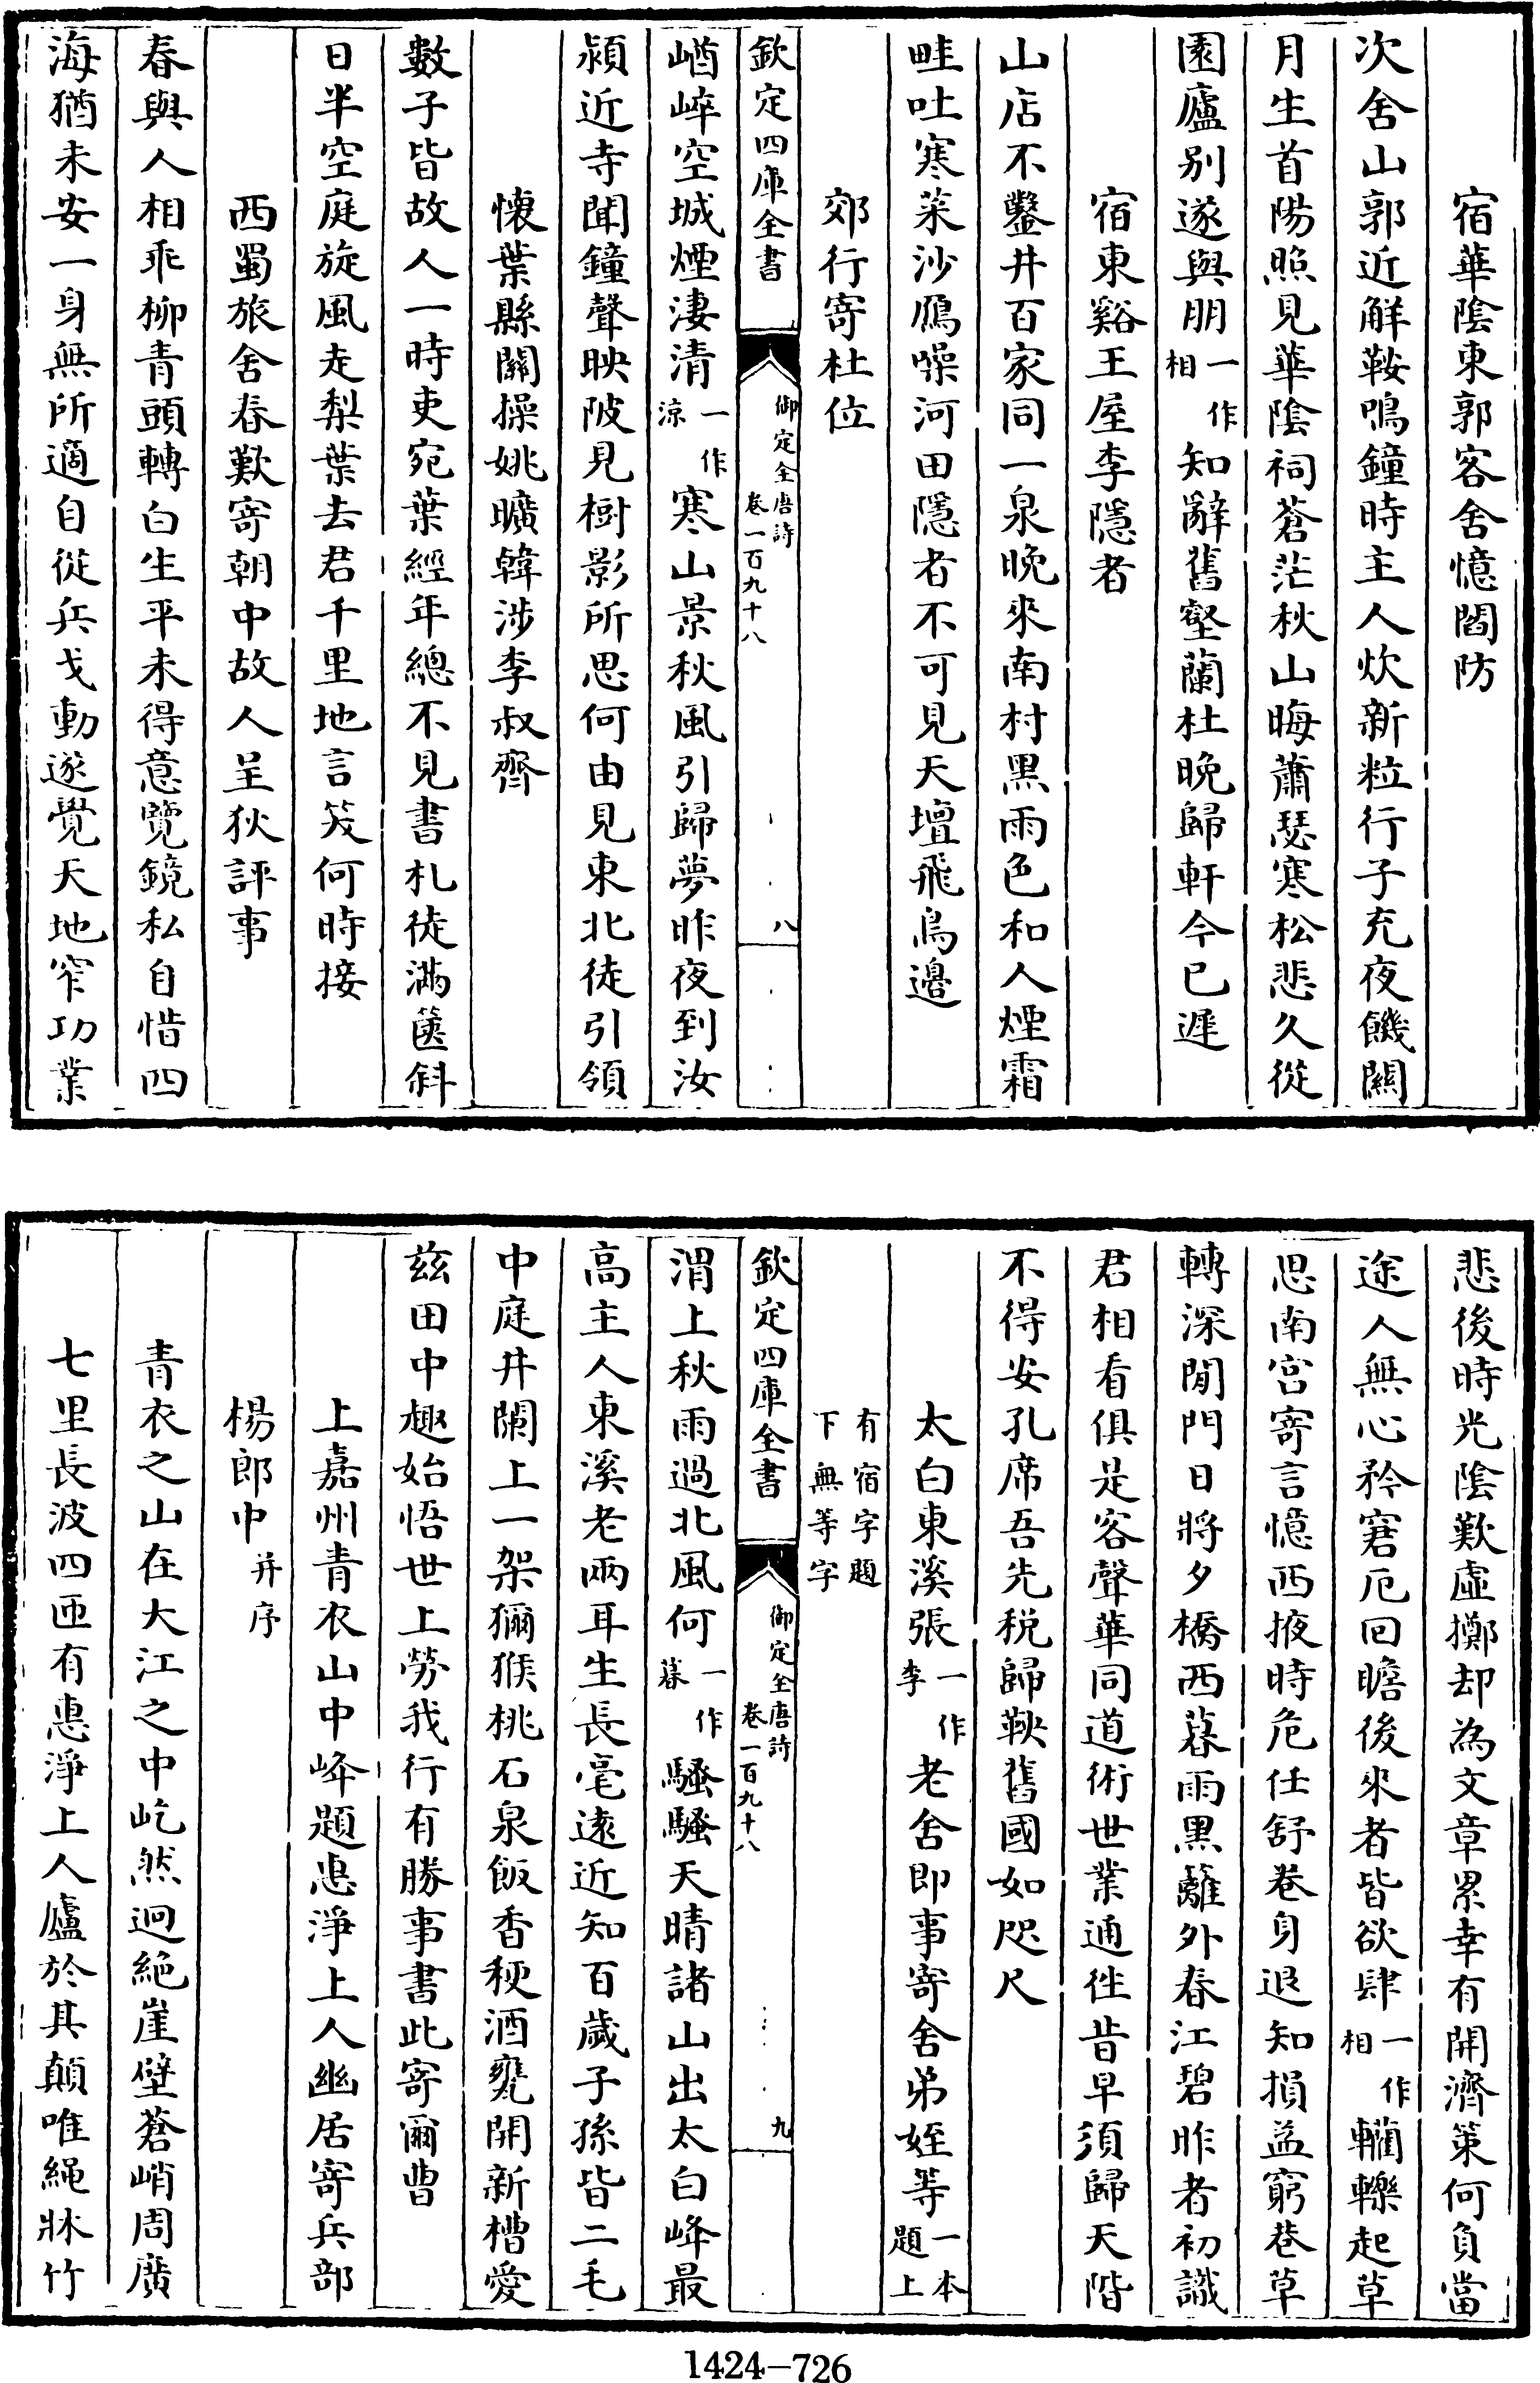 宿華陰東郭客舍憶閻防
次舍山郭近解鞍鳴鐘時主人炊新粒行子充夜饑關
月生首陽照見華陰祠蒼茫秋山晦蕭瑟寒松悲久從
園廬别遂與朋一作相知辭舊壑蘭杜晚歸軒今已遲
宿東谿王屋李隱者
山店不鑿井百家同一泉晚來南村黑雨色和人煙霜
畦吐寒菜沙鴈噪河田隱者不可見天壇飛鳥邊
郊行寄杜位
欽定四庫全書
御定全唐詩
卷一百九十八
八
崷崪空城煙淒清一作涼寒山景秋風引歸夢昨夜到汝
潁近寺聞鐘聲映陂見樹影所思何由見東北徒引領
懷葉縣關操姚曠韓涉李叔齊
數子皆故人一時吏宛葉經年總不見書札徒滿篋斜
日半空庭旋風走梨葉去君千里地言笑何時接
西蜀旅舍春歎寄朝中故人呈狄評事
春與人相乖柳青頭轉白生平未得意覽鏡私自惜四
海猶未安一身無所適自從兵戈動遂覺天地窄功業
悲後時光陰歎虛擲却為文章累幸有開濟策何負當
途人無心矜窘厄回瞻後來者皆欲肆一作相轥轢起草
思南宫寄言憶西掖時危任舒卷身退知損益窮巷草
轉深閒門日將夕橋西暮雨黑籬外春江碧昨者初識
君相看俱是客聲華同道術世業通徃昔早須歸天階
不得安孔席吾先税歸鞅舊國如咫尺
太白東溪張一作李老舍即事寄舍弟姪等一本題上
有宿字題下無等字
欽定四庫全書
御定全唐詩
卷一百九十八
九
渭上秋雨過北風何一作暮騷騷天晴諸山出太白峰最
高主人東溪老兩耳生長毫遠近知百歲子孫皆二毛
中庭井闌上一架獼猴桃石泉飯香稉酒甕開新槽愛
兹田中趣始悟世上勞我行有勝事書此寄爾曹
上嘉州青衣山中峰題惠淨上人幽居寄兵部
楊郎中并序
青衣之山在大江之中屹然迥絶崖壁蒼峭周廣
七里長波四匝有惠淨上人廬於其顛唯繩牀竹
1424-726